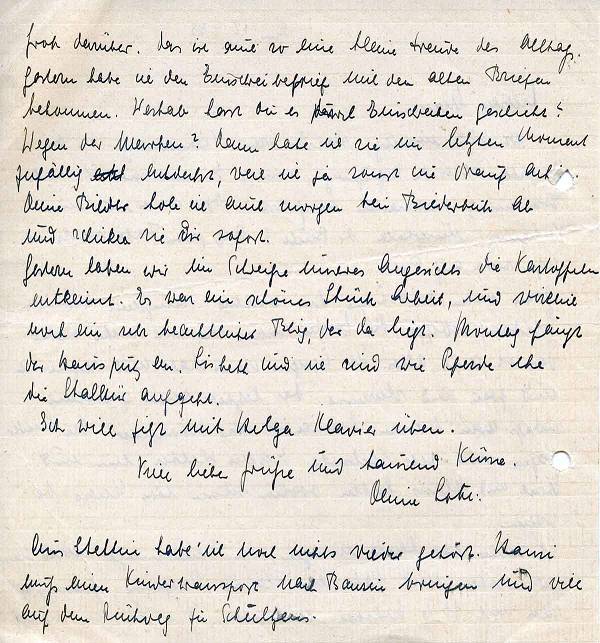 froh darüber. das ist auch so eine kleine Freude des Alltags.
Gestern habe ich den Einschreibebrief mit den alten Briefen
bekommen. Weshalb hast du es Einschreiben geschickt?
Wegen der Marken? Dann habe ich sie im letzten Moment
zufällig entdeckt, weil ich ja sonst nie drauf achte.
Deine Bücher hole ich auch morgen beim ab
und schicke sie Dir sofort.
Gestern haben wir im Schweiße unseres Angesichts die Kartoffeln
entkeimt. Es war ein schönes Stück Arbeit, und
noch ein sehr beachtlicher Berg, der da liegt. Montag fängt
der Hausputz an. Lisbeth und ich sind wie Pferde ehe
die Stalltür aufgeht.
Ich will jetzt mit Helga Klavier üben.
Viele liebe Grüße und tausend Küsse.
Deine Lotte.
Aus Stettin habe ich noch nichts wieder gehört. Hansi
muß einen Kindertransport nach Bansin bringen und will
auf dem Rückweg zu